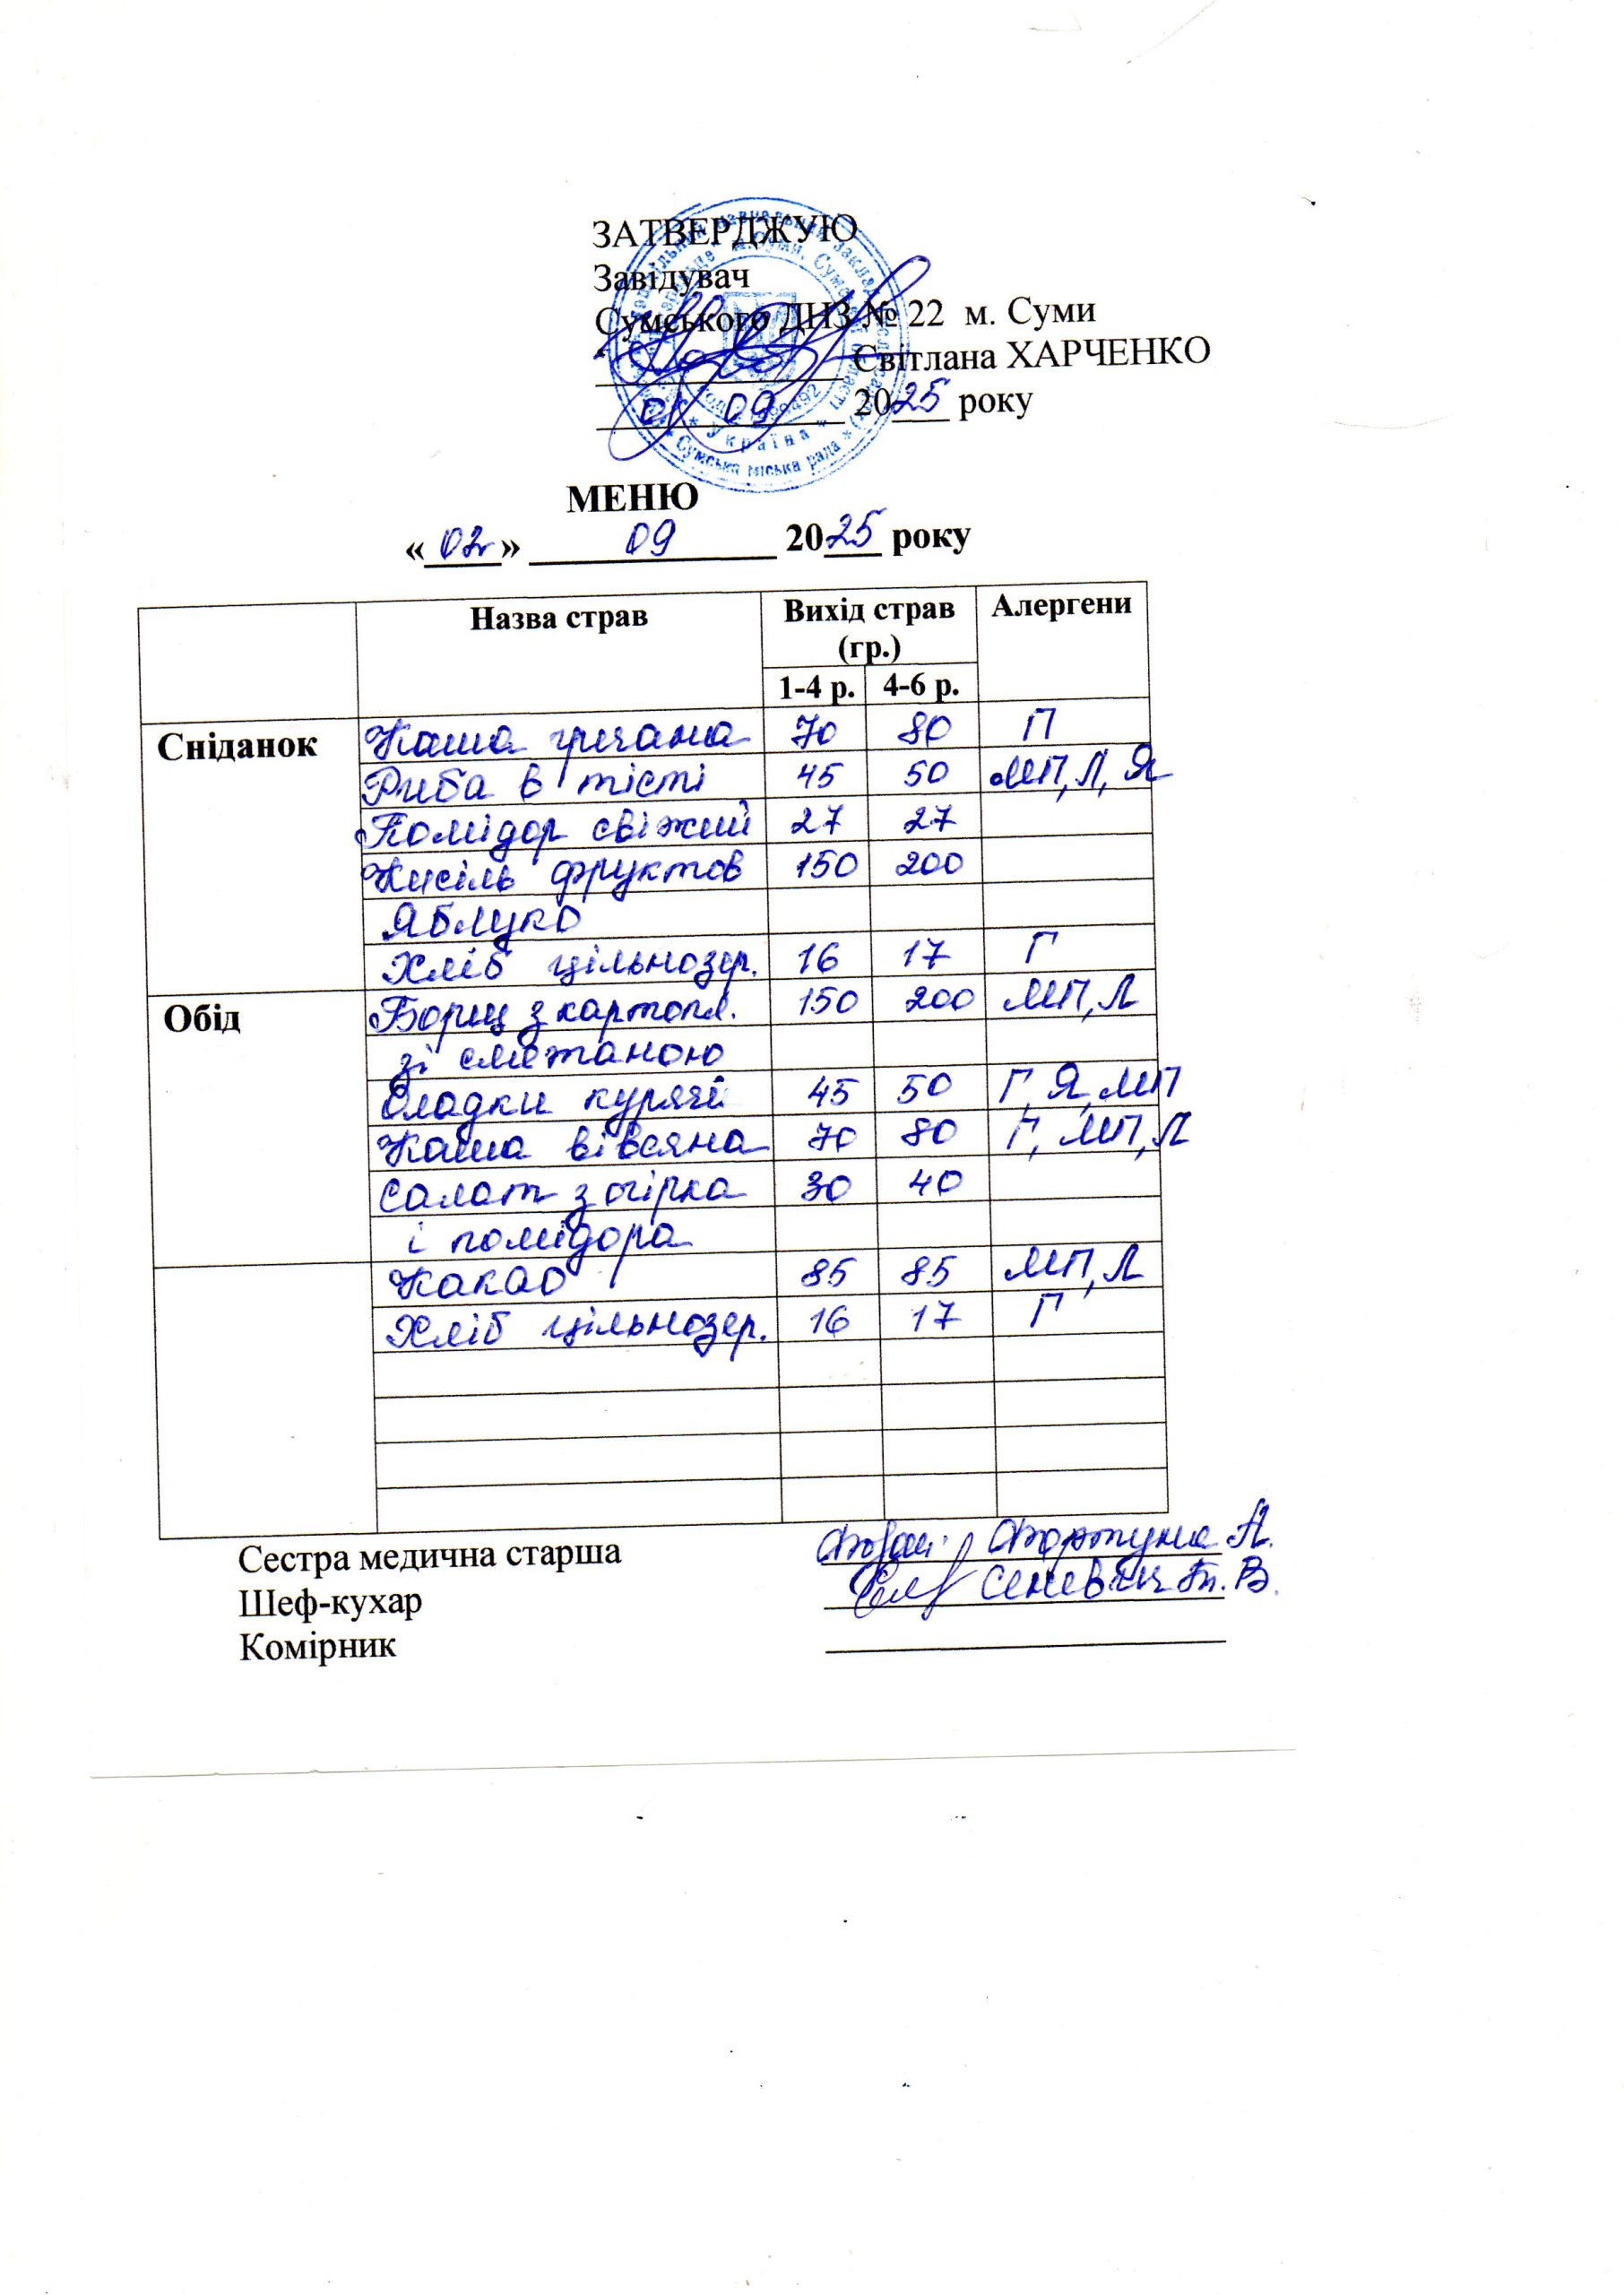 ЗАТВЕРДЖУЮ
Завідувач
Сумського ДНЗ № 22 м. Суми
Світлана ХАРЧЕНКО
01 09 2025 року
* Україна *
* Сумська міська рада *
МЕНЮ
«02» 09 2025 року
Назва страв Вихід страв (гр.) Алергени
1-4 р. 4-6 р.
Сніданок Каша гречана 70 80 П
Риба в тісті 45 50 МП, Л, Я
Помідор свіжий 27 27
Кисіль фруктов 150 200
Яблуко
Хліб цільнозер. 16 17 Г
Обід Борщ з картопл. 150 200 МП, Л
зі сметаною
Оладки курячі 45 50 Г, Я, МП
Каша вівсяна 70 80 Г, МП, Л
Салат з огірка 30 40
і помідора
Какао 85 85 МП, Л
Хліб цільнозер. 16 17 Г
Сестра медична старша
Шеф-кухар
Комірник